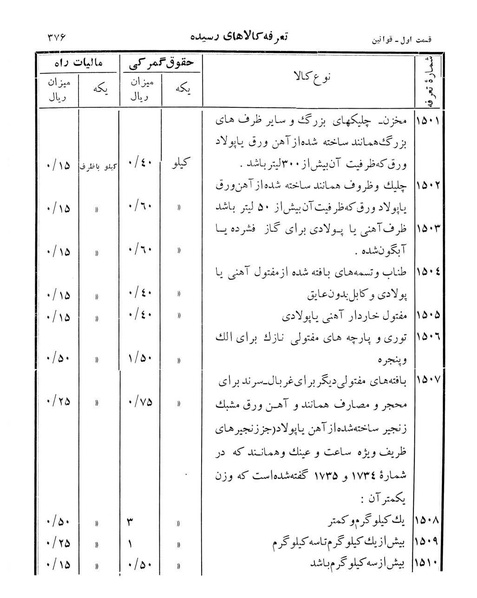 قسمت اول - قوانین
تعرفه کالاهای رسیده
۳۷۶
شمارهٔ تعرفه
نوع کالا
حقوق گمرکی
مالیات راه
یکه
میزان ریال
یکه
میزان ریال
۱۵۰۱ مخزن - چلیکهای بزرگ و سایر ظرف های
بزرگ همانند ساخته شده از آهن ورق یا پولاد
ورق که ظرفیت آن بیش از ۳۰۰ لیتر باشد . کیلو ۰/۴۰ کیلو باظرف ۰/۱۵
۱۵۰۲ چلیک و ظروف همانند ساخته شده از آهن ورق
یا پولاد ورق که ظرفیت آن بیش از ۵۰ لیتر باشد » ۰/۶۰ » ۰/۱۵
۱۵۰۳ ظرف آهنی یا پولادی برای گاز فشرده یا
آبگون شده . » ۰/۶۰ » ۰/۱۵
۱۵۰۴ طناب و تسمه های بافته شده از مفتول آهنی یا
پولادی و کابل بدون عایق » ۰/۴۰ » ۰/۱۵
۱۵۰۵ مفتول خاردار آهنی یا پولادی » ۰/۴۰ » ۰/۱۵
۱۵۰۶ توری و پارچه های مفتولی نازک برای الک
و پنجره » ۱/۵۰ » ۰/۵۰
۱۵۰۷ بافته های مفتولی دیگر برای غربال - سرند برای
محجر و مصارف همانند و آهن ورق مشبک » ۰/۷۵ » ۰/۲۵
زنجیر ساخته شده از آهن یا پولاد (جز زنجیرهای
ظریف ویژه ساعت و عینک و همانند که در
شمارهٔ ۱۷۳۴ و ۱۷۳۵ گفته شده است که وزن
یکمتر آن :
۱۵۰۸ یک کیلو گرم و کمتر » ۳ » ۰/۵۰
۱۵۰۹ بیش از یک کیلو گرم تا سه کیلو گرم » ۱ » ۰/۲۵
۱۵۱۰ بیش از سه کیلو گرم باشد » ۰/۵۰ » ۰/۱۵